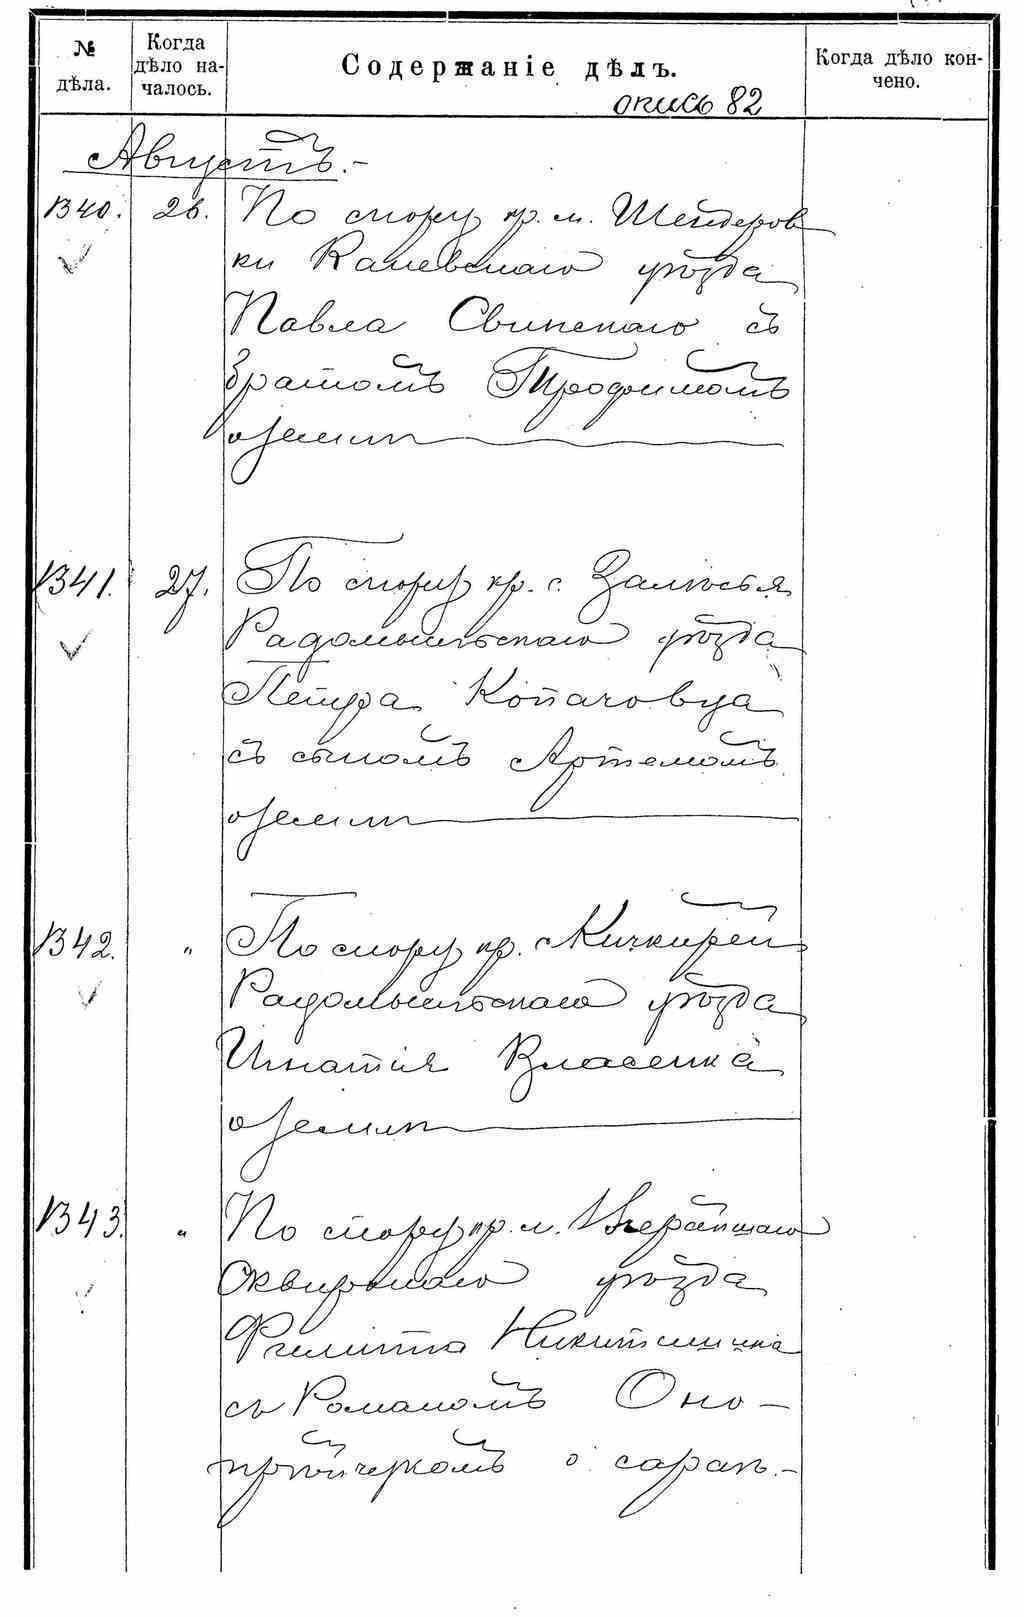 № дѣла.
Когда дѣло на-
чалось.
Содержаніе дѣлъ.
Когда дѣло кон-
чено.
опись 82
Августъ.-
1340. 26. По спору кр. м. Шендеров
ки Каневскаго уѣзда
Павла Свинскаго съ
братомъ Трофимомъ
о землѣ
1341. 27. По спору кр. с. Замостья
Радомысльскаго уѣзда
Петра Копачовца
съ сыномъ Артемомъ
о землѣ
1342. " По спору кр. с. Кичкирей
Радомысльскаго уѣзда
Игнатія Власенка
о землѣ
1343. " По спору кр. м.
Сквирскаго уѣзда
Филиппа
съ Романомъ Оно-
прійчукомъ о сараѣ.-